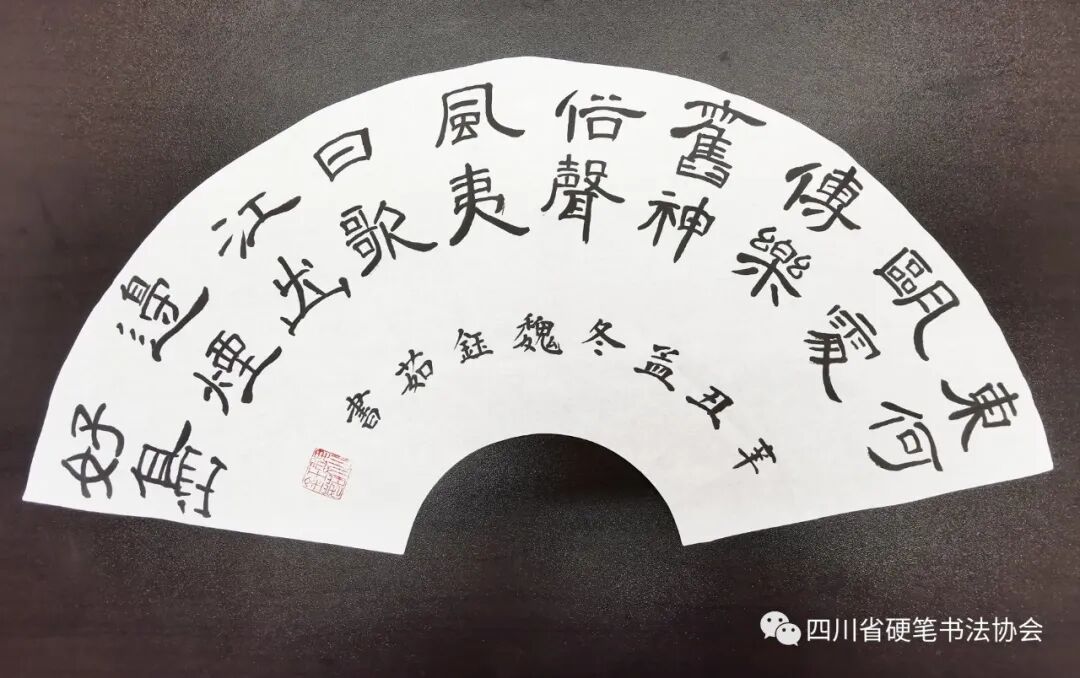 東甌傳舊俗風日江邊好
何處樂神聲夷歌出煙島
辛丑孟冬魏鈺茹書
四川省硬笔书法协会